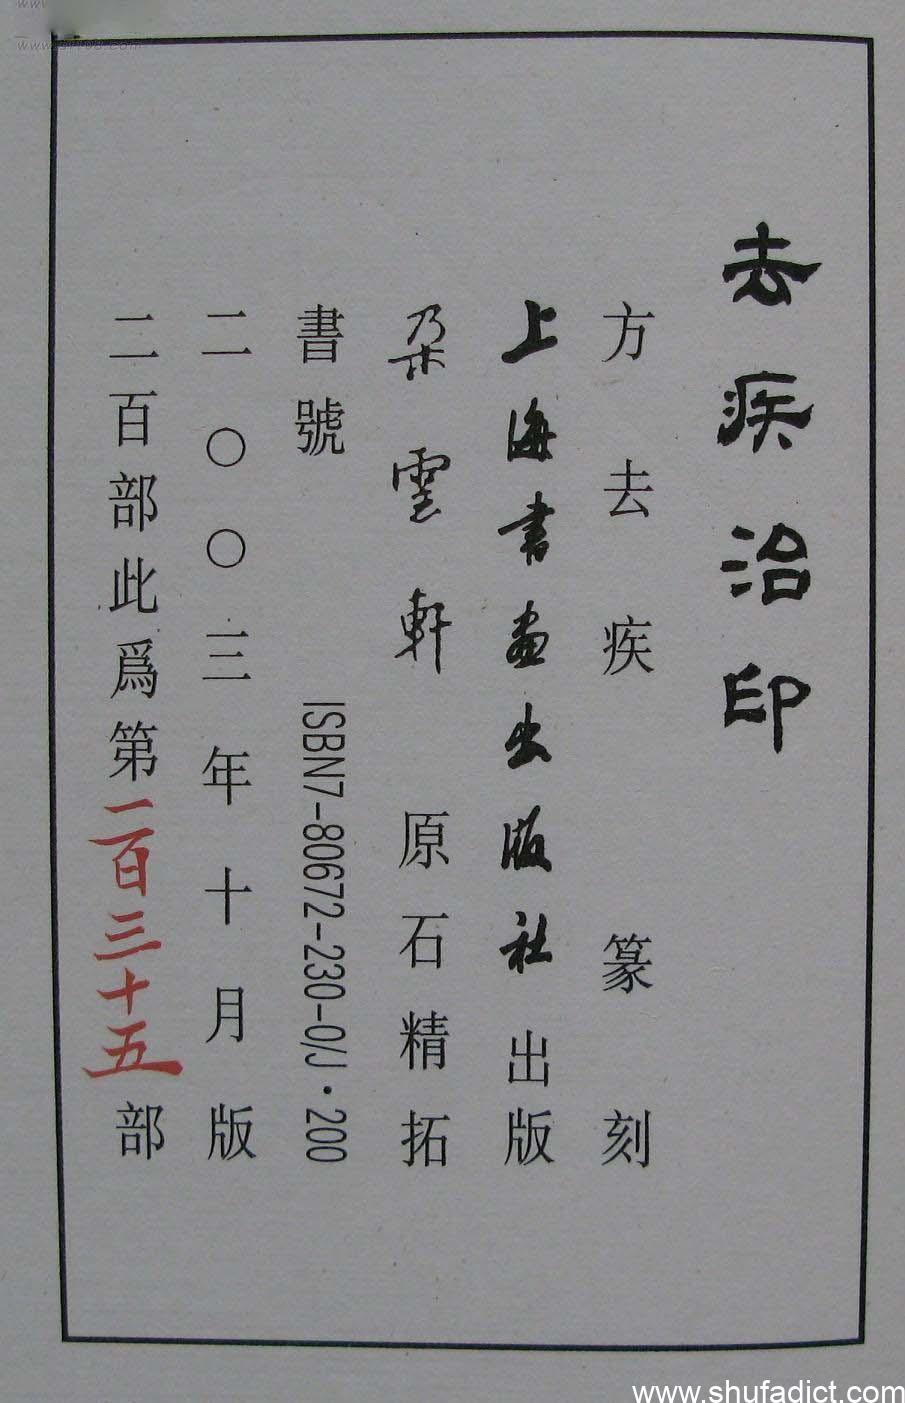 去疾治印
方去疾 篆刻
上海書畫出版社 出版
朵雲軒 原石精拓
書號 ISBN7-80672-230-0/J·200
二〇〇三年十月版
二百部此爲第一百三十五部
www.shufadict.com